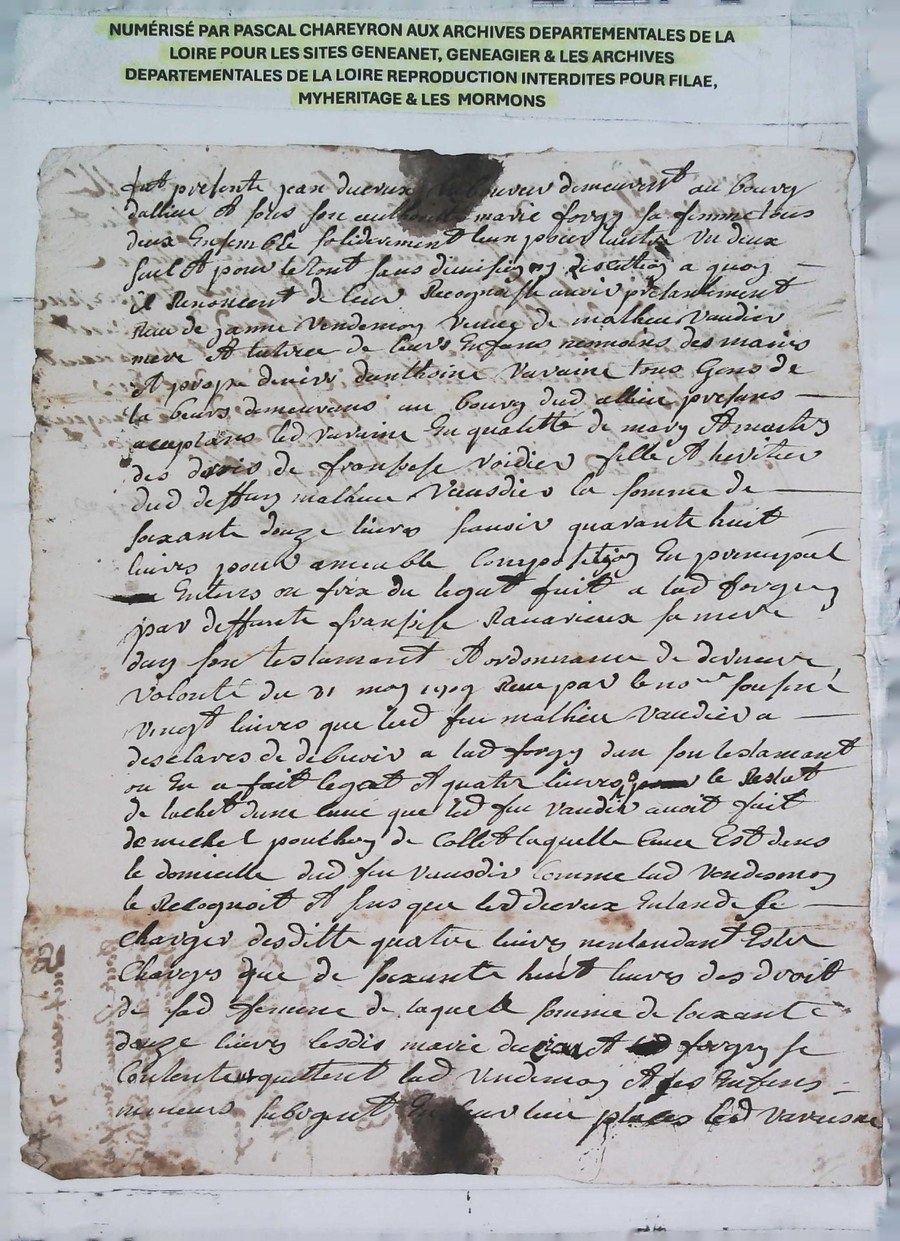 NUMÉRISÉ PAR PASCAL CHAREYRON AUX ARCHIVES DEPARTEMENTALES DE LA
LOIRE POUR LES SITES GENEANET, GENEAGIER & LES ARCHIVES
DEPARTEMENTALES DE LA LOIRE REPRODUCTION INTERDITES POUR FILAE,
MYHERITAGE & LES MORMONS
fut presente jean ducreux laboureur demeurant au bourg
dallieu et sous son authorité marie forgy sa femme tous
deux ensemble soliderement lun pour lautre un deux
seul et pour le tout sans division ny discution a quoy
il renoncent de leur recognoissance avoir presentement
receu de janne Vendemon veuve de mathieu vaudier
mere et tutrice de leurs enfans des mains
et propre denirs danthoine Varaine tous Gens de
labeurs demeurans au bourg dud allieu presans
aceptans led varaine en qualitté de mary et maitre
des de fransoise voidier fille et heritier
dud deffun mathieu la somme de
soixante douze livres sauoir quarante huit
livres pour ameuble Composition en principal
du legat fait a lad forgy
par deffunte fransoise Ravarieux sa mere
dan son testamant et ordonnance de derniere
volonté du 31 may receu par le soussiné
vingt livres que led feu mathieu vaudier a
desclares de debuoir a lad forgy dan son testamant
ou en a fait legat et quatre livres le
de lachat dune cuue que led feu vaudier auoit fait
de michel ponchon de Collet laquelle Cuue Est dans
le domicille dud feu Comme lad Vendemon
le Recognoit et sans que led ducreux Entande se
charger desditte quatre livres nentandant Estre
Charges que de soixante huit livres des droit
de sad femme de laquelle somme de soixante
douze livres lesdis marie et forgy se
Contente quittent lad Vendemon et ses Enfens
mineurs subrogent en leur lieu places led varaisne